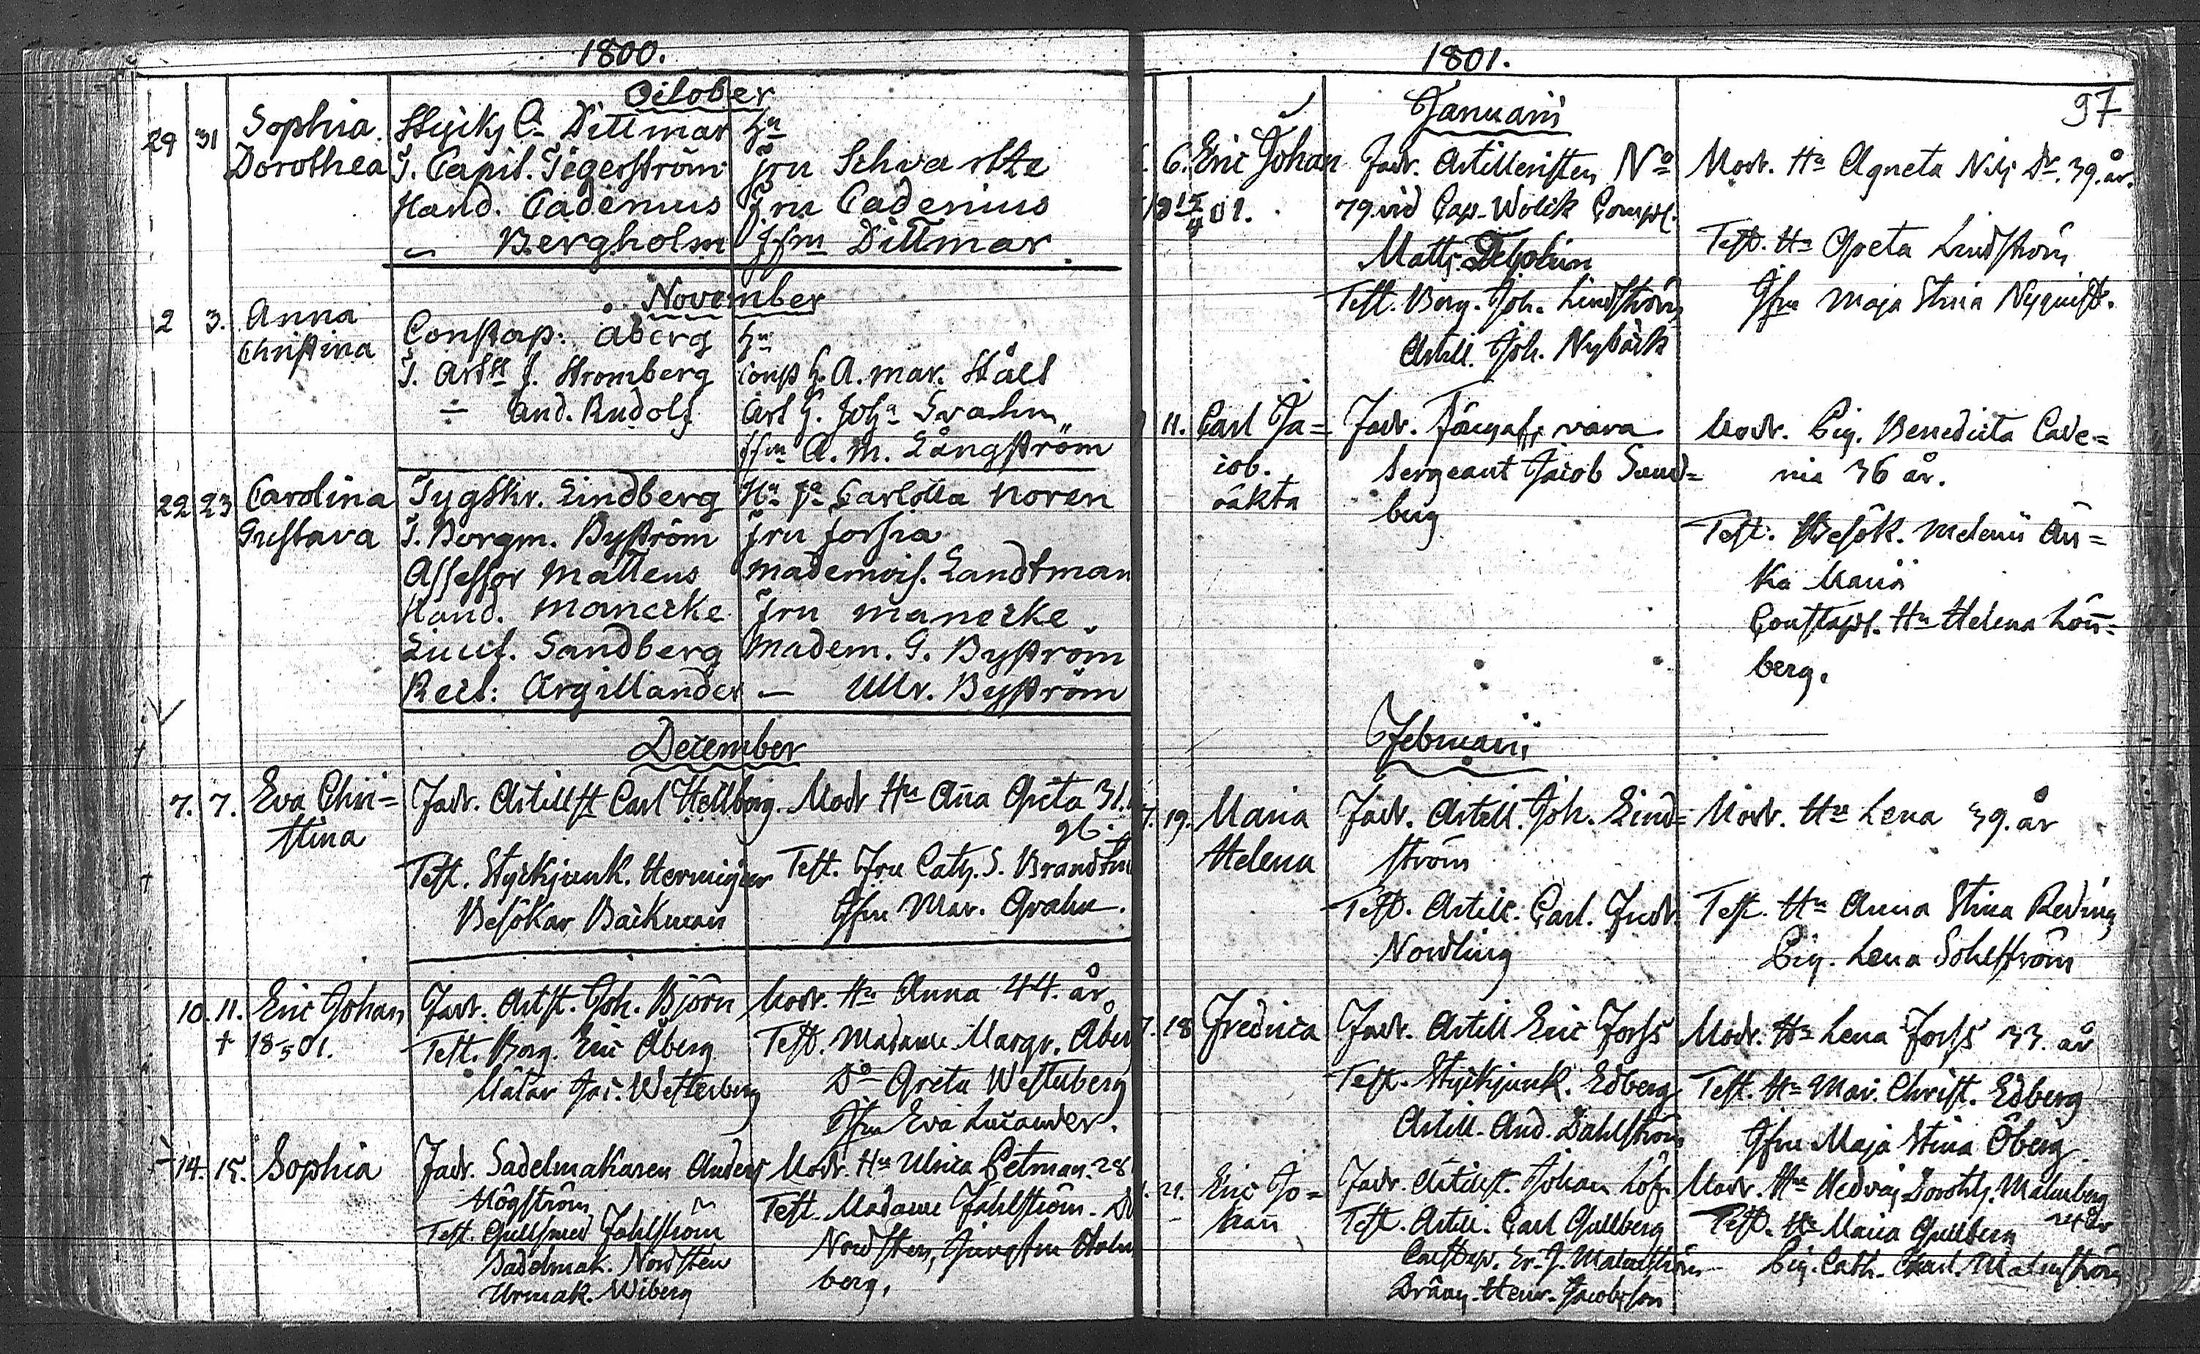 1800.
October
29 31 Sophia Dorothea
Styckj. C. Dittmar Hu
T. Capit. Tegerström Fru Schvartze
Hand. Cadenius Fru Cadenius
Bergholm Jfru Dittmar.
November
2 3. Anna Christina
Constap: Åberg Hu
T. Art J. Stromberg Consp h. A. Mar. Stål
÷ And. Rudolf Art h. Joha Svahn
Jfru A. M. Långström
22 23 Carolina Gustava
Tygskr. Lindberg Hu Carlotta Noren
T. Borgm. Byström Fru Forssa
Assessor Matteus Mademois. Landtman
Hand. Manecke Fru Manecke
Lieut. Sandberg Madem. G. Byström
Rect: Argillander — Ullr. Byström
December
7. 7. Eva Chri=
stina
Fadr. Artillst Carl Hellberg. Modr Hu Aña Greta 31.
Test. Styckjunk. Test. Fru Cath. S.
Besökar Bäckman Jfru Mar. Grahn.
10. 11. Eric Johan
† 18 5 01.
Fadr. Artst. Joh. Björn Modr. Hu Anna 44. år
Test. Borg. Eric Åberg Test. Madame Margr.
Mätar Jac. Westerberg Do Greta Westerberg
Jfru Eva Lucander.
14. 15. Sophia
Fadr. Sadelmakaren Anders Modr. Hu Ulrica Petman. 28
Högström
Test. Gullsmed Fahlström Test. Madame Fahlström. Do
Sadelmak. Nordsten Nordsten, Jungfru Holm
Urmak. Wiberg berg.
1801.
97
Januarii
6. Eric Johan
01.
Fadr. Artilleristen No Modr. Hu Agneta Nils Dr. 39. år.
79. vid Cap. Wolck Comp.
Matts
Test. Borg. Joh. Lindström Test. Hu Greta Lindström
Artill. Joh. Nybäck Jfru Maja Stina Nyquist.
11. Carl Ja=
cob.
oäkta
Fadr. vara Modr. Pig. Benedicta Cade=
Sergeant Jacob Sand= nia 36 år.
berg
Test. Besök. An=
Ka Maria
Constap. Hu Helena Löñ=
berg.
Februarii
19. Maria
Helena
Fadr. Artill. Joh. Lind= Modr. Hu Lena 39. år
ström
Test. Artill. Carl. Fredr. Test. Hu Anna Stina Reding
Nordling Pig. Lena Sohlström
18 Fredrica
Fadr. Artill Eric Forss Modr. Hu Lena Forss 33. år
Test. Styckjunk. Edberg Test. Hu Mar. Christ. Edberg
Artill. And. Dahlström Jfru Maja Stina Öberg
21. Eric Jo=
hañ
Fadr. Artillst. Johan Löf. Modr. Hu Hedvig Doroth. Malmberg
24 år
Test. Artill. Carl Gullberg Test. Hu Maria Gullberg
Constap. Er. J. Malmström Pig. Cath. Charl. Malmström
Dräng Henr. Jacobsson